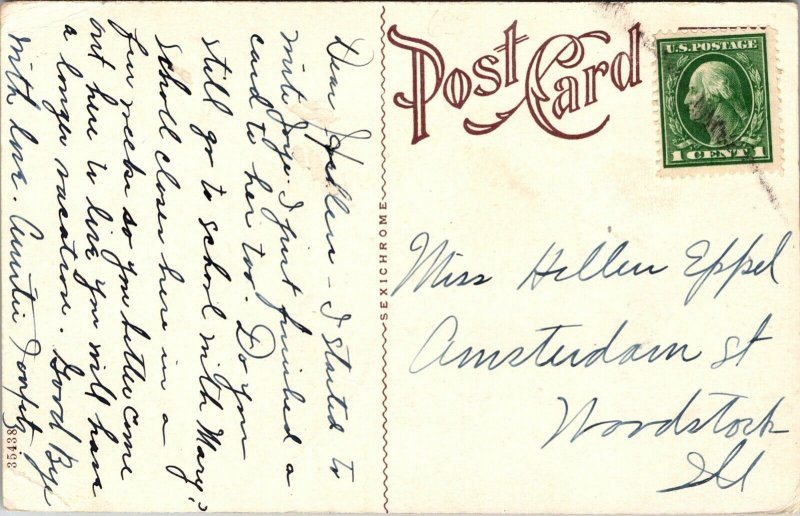 Dear Hellen - I started to
write Joye. I just finished a
card to her too. Do you
still go to school with Mary?
School closes here in a
few weeks so you better come
out here to live you will have
a longer vacation. Good Bye
with love. Auntie
35438
SEXICHROME
Post Card
U.S. POSTAGE
1 CENT 1
Miss Hellen Eppel
Amsterdam St
Woodstock
Ill